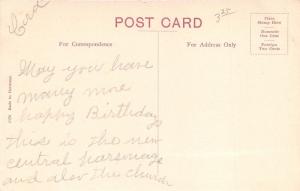 Bird
POST CARD
3.50
For Correspondence
For Address Only
Place
Stamp Here
Domestic
One Cent
Foreign
Two Cents
May you have
many more
happy Birthdays
this is the new
central parsonage
and also the church
Made in Germany